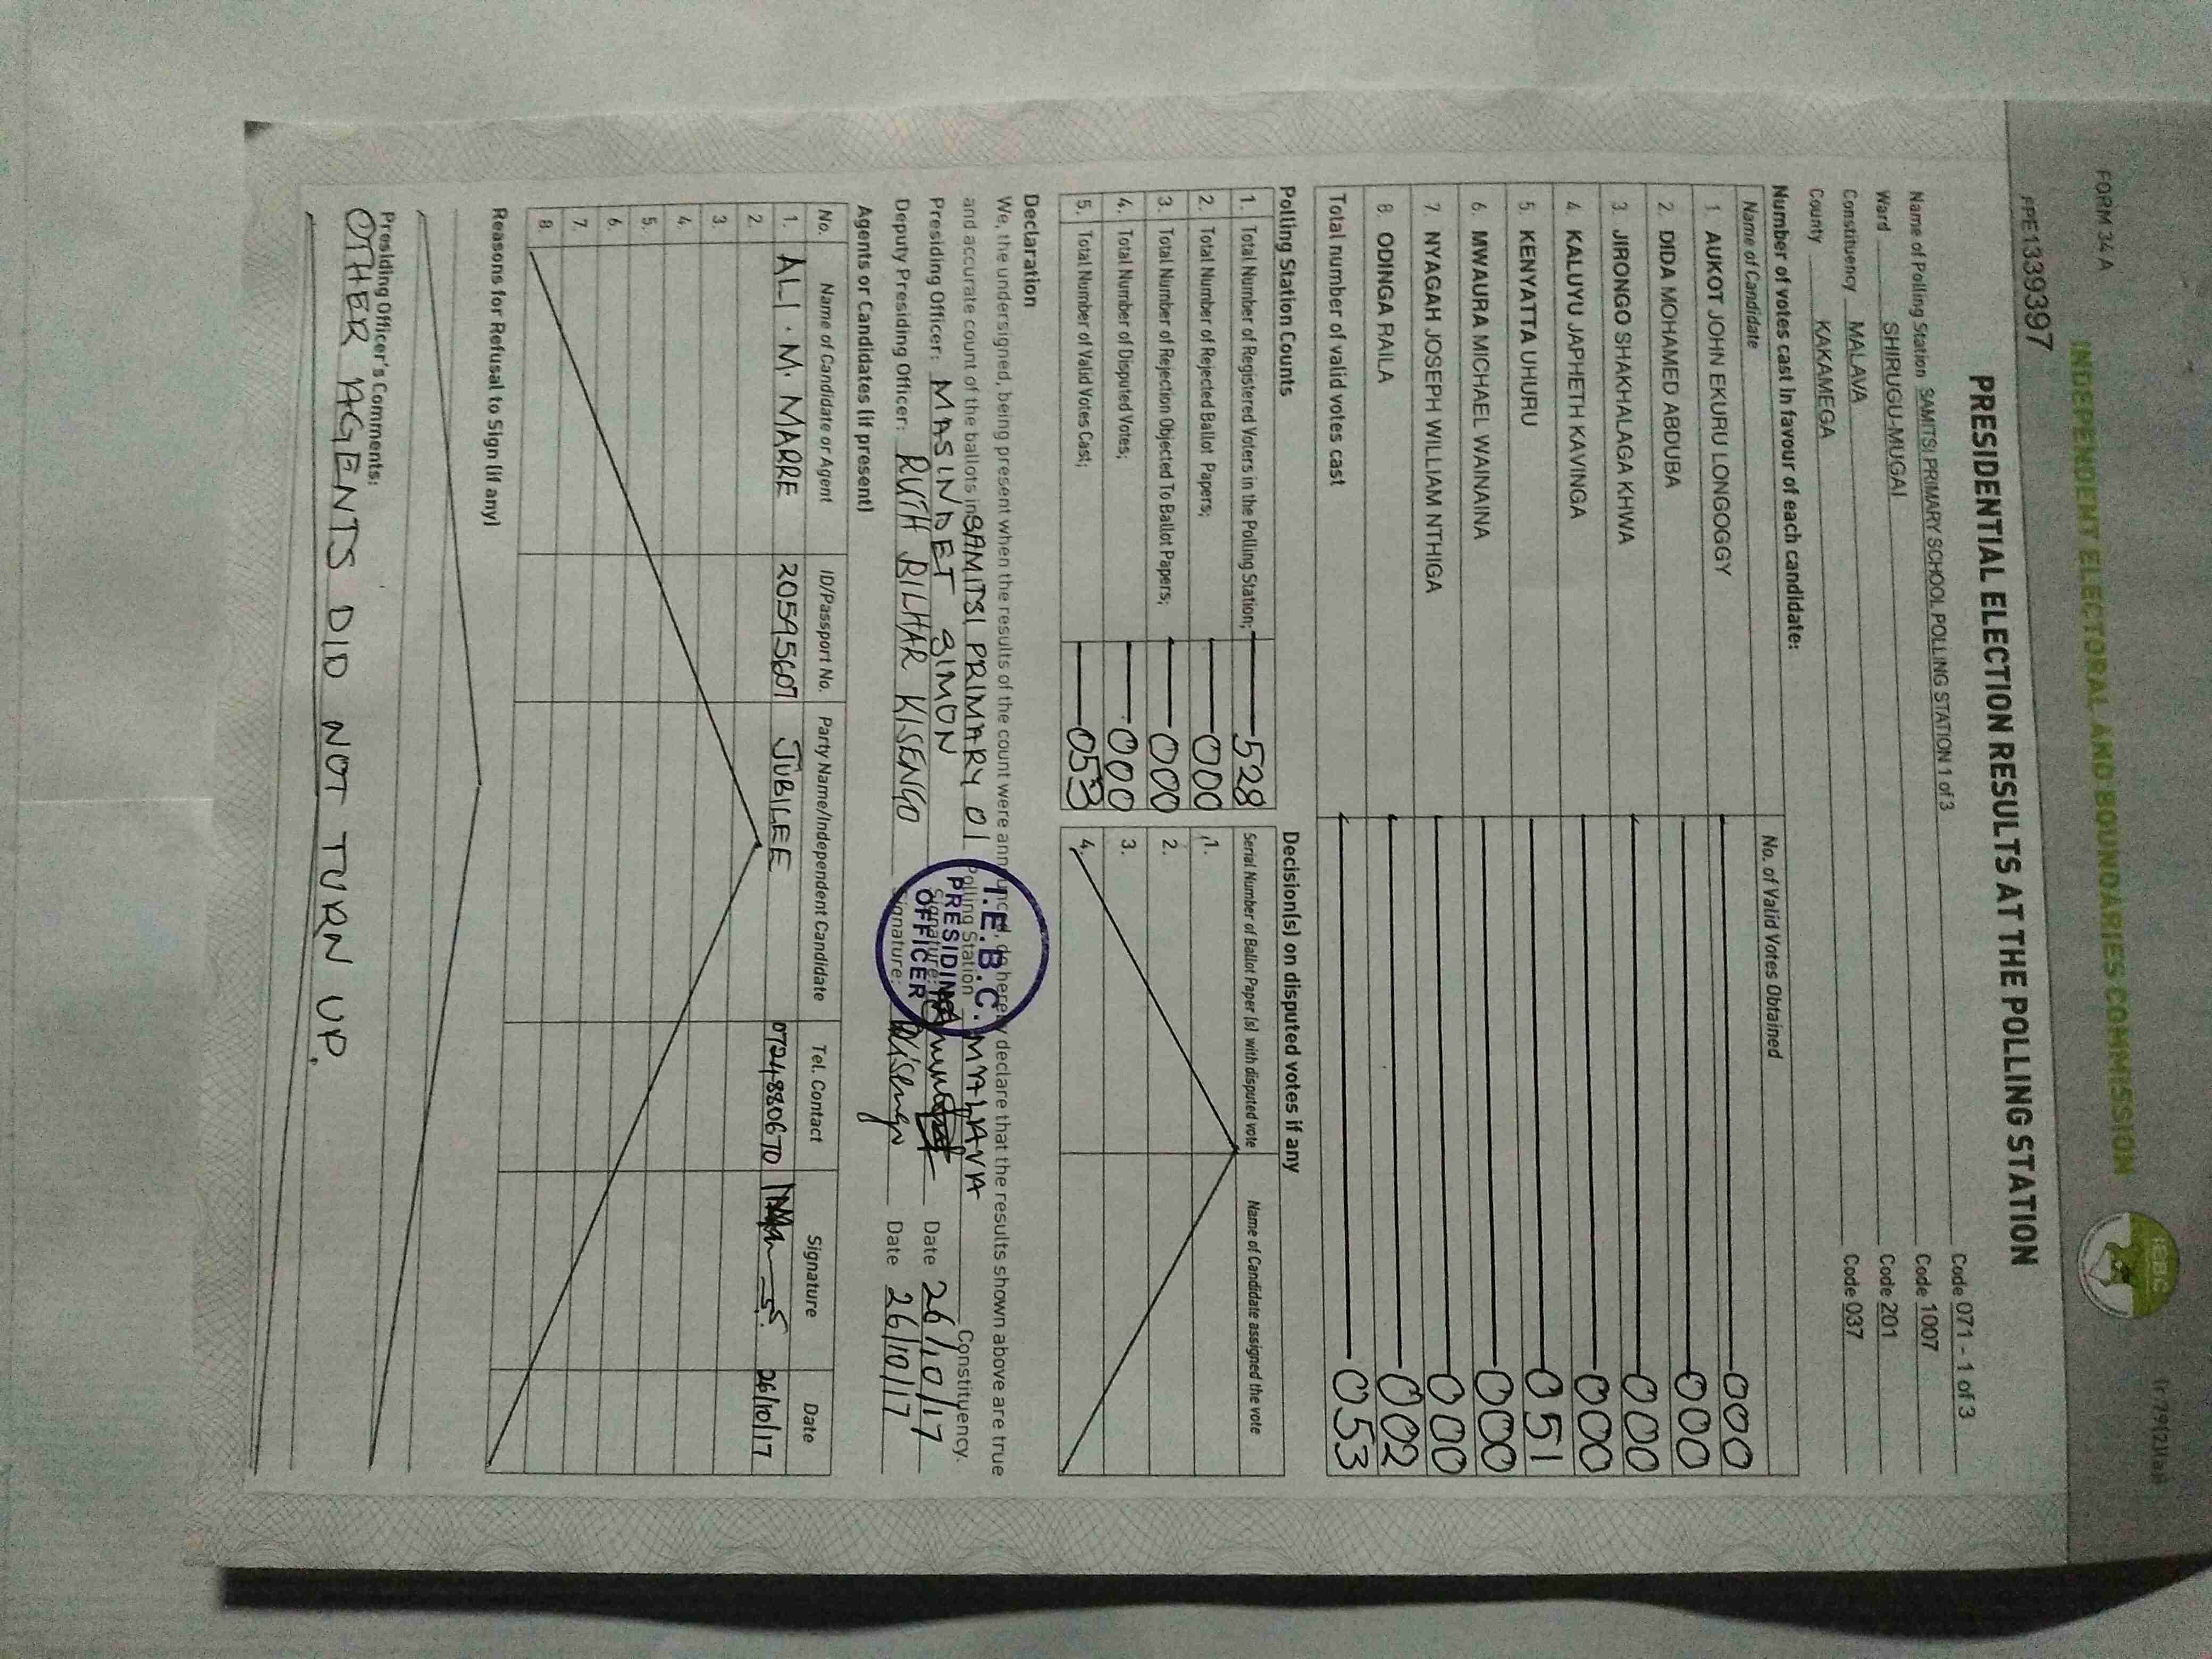 FORM 34 A
INDEPENDENT ELECTORAL AND BOUNDARIES COMMISSION
IEBC
(r.79(2)(a))
PPE1339397
PRESIDENTIAL ELECTION RESULTS AT THE POLLING STATION
Name of Polling Station SAMITSI PRIMARY SCHOOL POLLING STATION 1 of 3 Code 071 - 1 of 3
Ward SHIRUGU-MUGAI Code 1007
Constituency MALAVA Code 201
County KAKAMEGA Code 037
Number of votes cast in favour of each candidate:
Name of Candidate No. of Valid Votes Obtained
1. AUKOT JOHN EKURU LONGOGGY 000
2. DIDA MOHAMED ABDUBA 000
3. JIRONGO SHAKHALAGA KHWA 000
4. KALUYU JAPHETH KAVINGA 000
5. KENYATTA UHURU 051
6. MWAURA MICHAEL WAINAINA 000
7. NYAGAH JOSEPH WILLIAM NTHIGA 000
8. ODINGA RAILA 002
Total number of valid votes cast 053
Polling Station Counts
1. Total Number of Registered Voters in the Polling Station; 528
2. Total Number of Rejected Ballot Papers; 000
3. Total Number of Rejection Objected To Ballot Papers; 000
4. Total Number of Disputed Votes; 000
5. Total Number of Valid Votes Cast; 053
Decision(s) on disputed votes if any
Serial Number of Ballot Paper (s) with disputed vote Name of Candidate assigned the vote
1.
2.
3.
4.
Declaration
We, the undersigned, being present when the results of the count were announced, do hereby declare that the results shown above are true
and accurate count of the ballots in SAMITSI PRIMARY 01 Polling Station MALAVA Constituency.
Presiding Officer: MASINDET SIMON Signature: Date 26/10/17
Deputy Presiding Officer: RUTH BILHAR KISENGO Signature: Date 26/10/17
I.E.B.C.
PRESIDING
OFFICER
Agents or Candidates (if present)
No. Name of Candidate or Agent ID/Passport No. Party Name/Independent Candidate Tel. Contact Signature Date
1. ALI . M. MARRE 20595607 JUBILEE 0724880670 26/10/17
2.
3.
4.
5.
6.
7.
8.
Reasons for Refusal to Sign (if any)
Presiding Officer's Comments:
OTHER AGENTS DID NOT TURN UP.